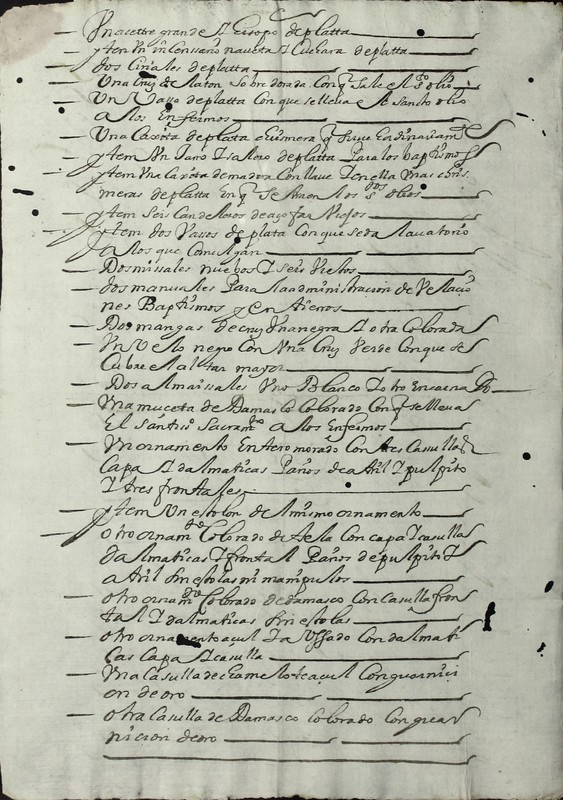 Una cettre grande y Eisopo de platta
ytem Un incensario naveta y Cuchara de platta
dos Ciriales de platta
Una Cruz de laton Sobre dorada Con q Sale el sto olio
Un Vaso de platta Con que se lleva el Santo olio
a los Enfermos
Una Caxita de plata chrismera q Sirve
ytem Un Jarro y salero de platta Para los baptismos
ytem Una Caxita de madera Con llave y en ella tres chris
meras de platta En q Se traen los stos olios
ytem Seis Candeleros de açofar Viejos
ytem dos Vassos de plata Con que se da lavatorio
a los que Comulgan
Dos missales nuebos y seis Viejos
dos manuales Para la administracion de Velacio
nes Baptismos y entierros
Dos mangas de cruz Una negra y otra Colorada
Un Velo negro Con Una Cruz Verde Con que se
Cubre el altar mayor
Dos almaissales Uno Blanco y otro Encarnado
Una muceta de Damasco Colorado Con q se lleva
El santiso Sacramto a los Enfermos
Un ornamento Entero morado Con tres Casullas
Capa y dalmaticas Paños de atril y pulpito
y tres frontales
ytem Un estolon del mismo ornamento
otro ornamto Colorado de tela Con capa y casulla
dalmaticas y frontal Paños de pulpito y
atril sin estolas ni manipulos
otro ornamto Colorado de damasco Con Casulla fron
tal y dalmaticas sin estolas
otro ornamento açul ya Ussado Con dalmati
cas Capa y casulla
Una Casulla de chamelote açul Con guarnici
on de oro
otra Casulla de Damasco Colorado Con guar
nicion de oro